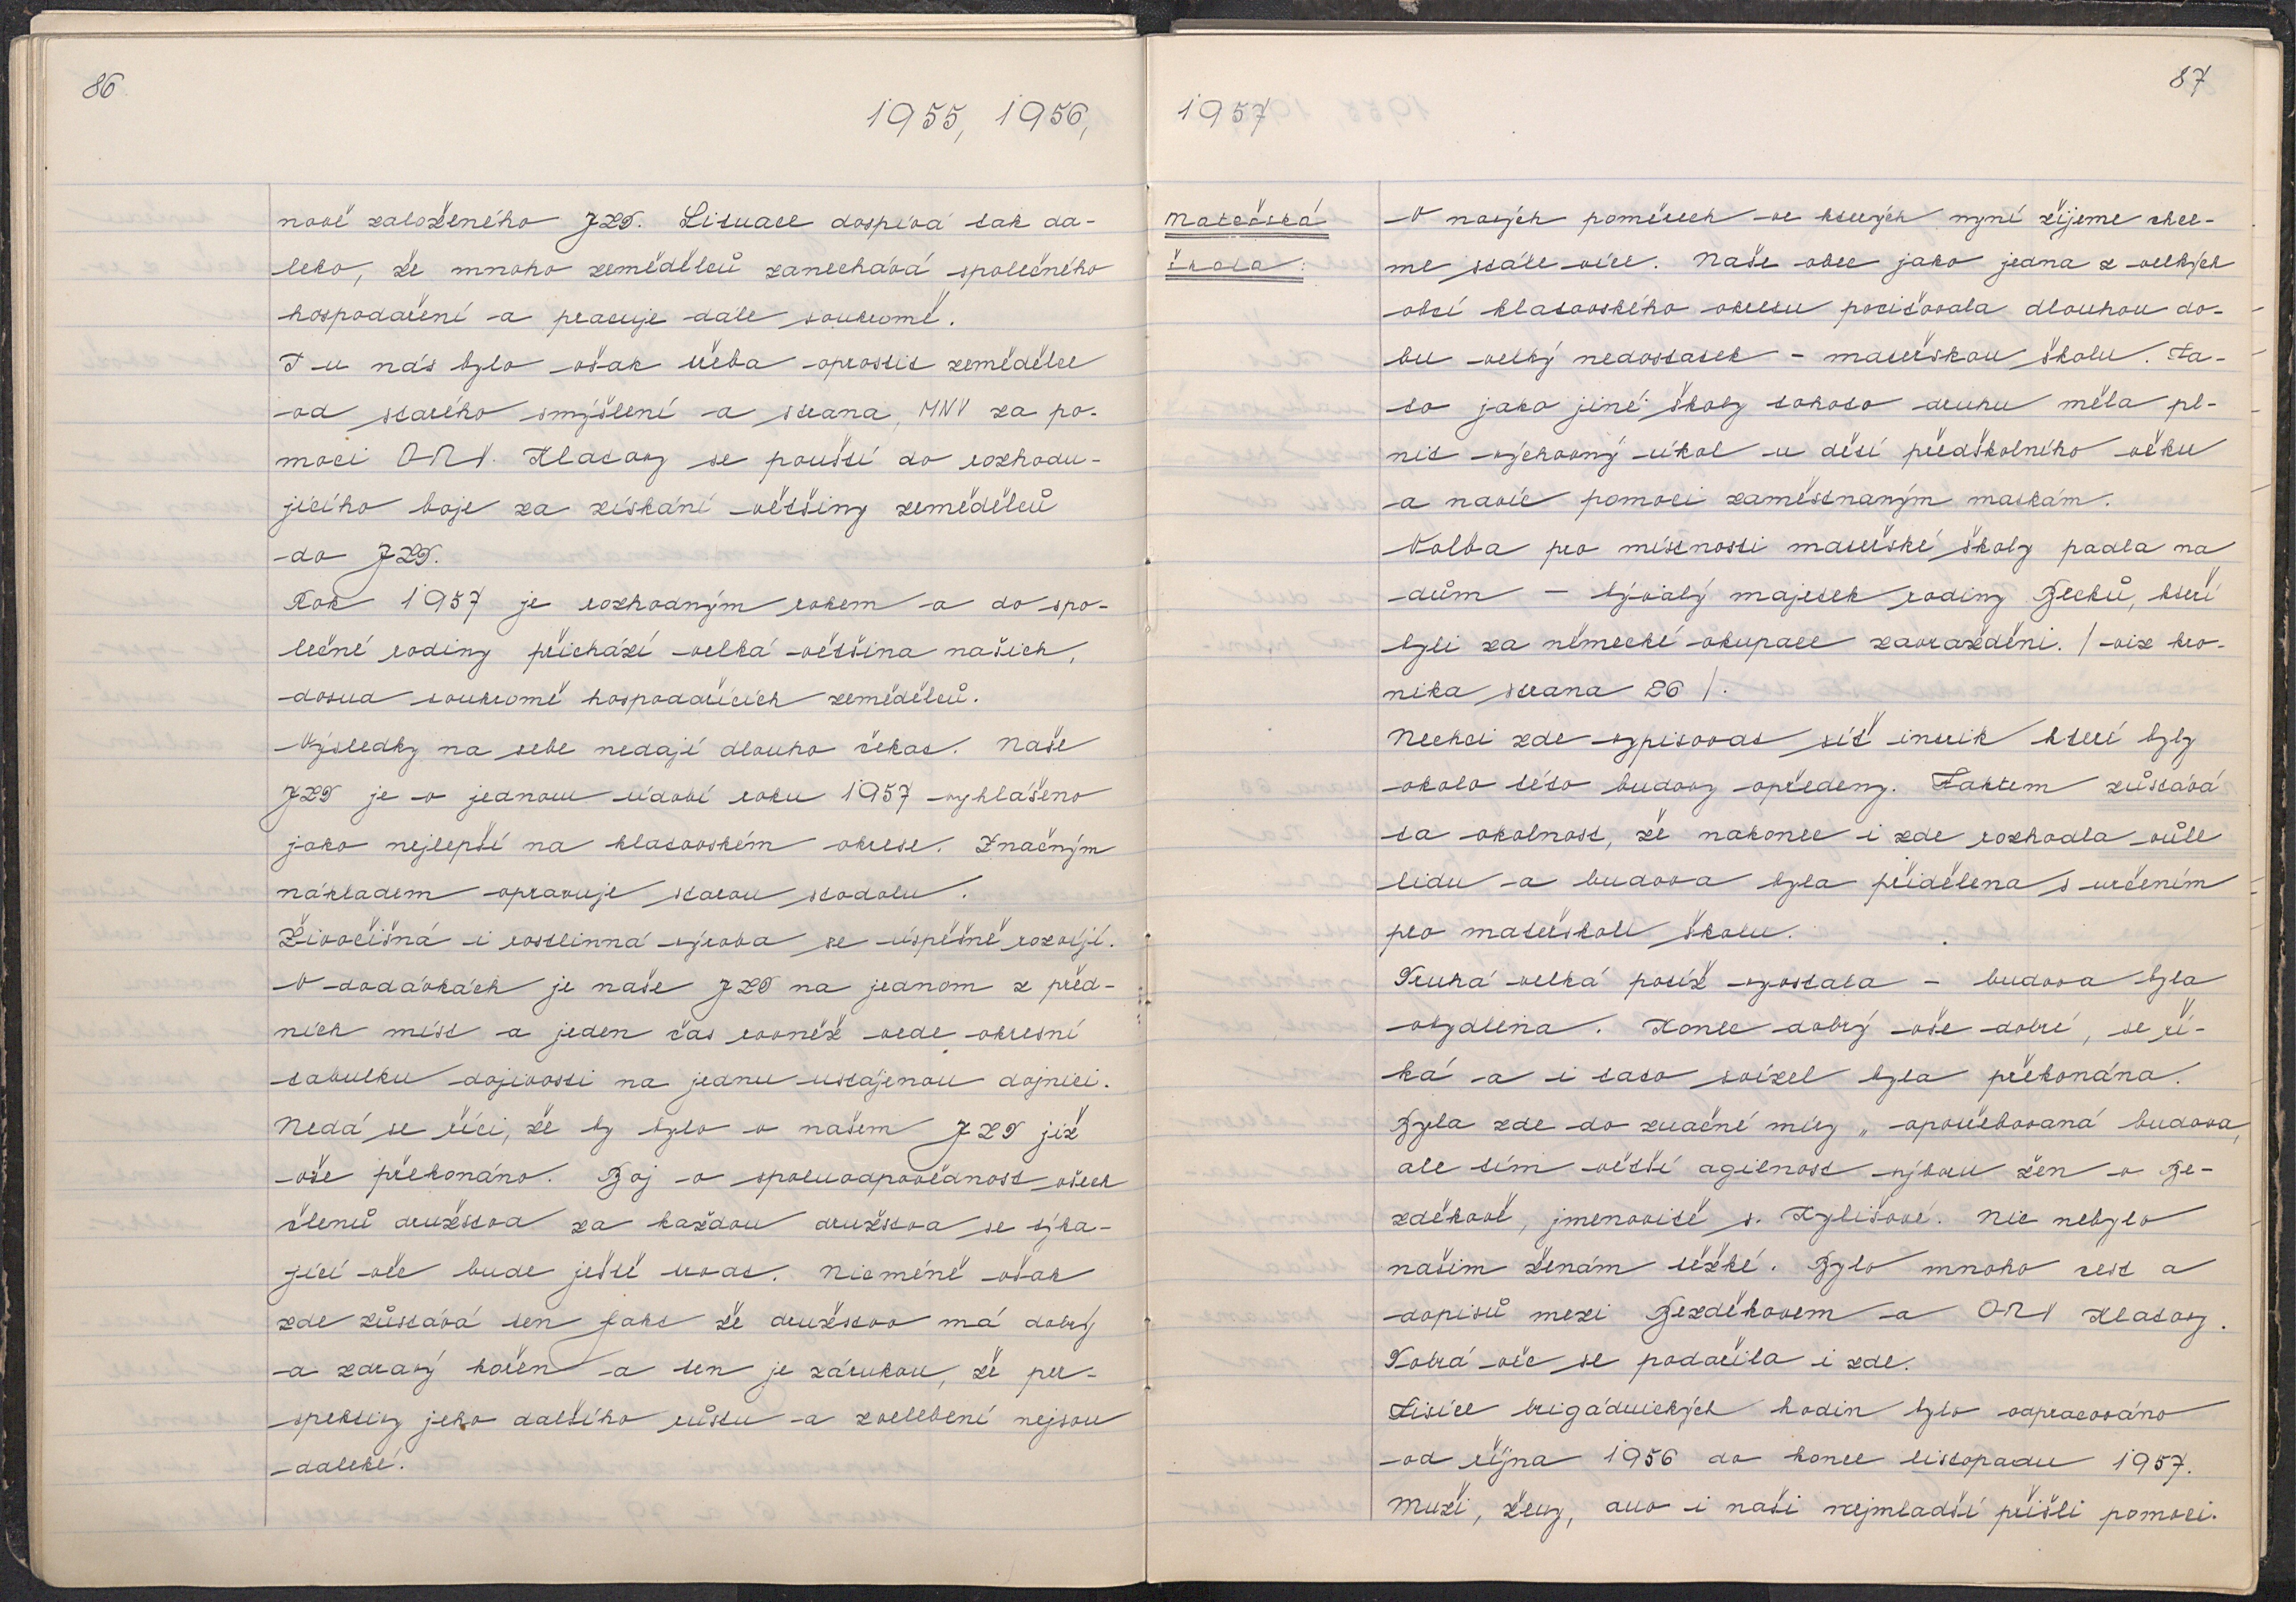 86
1955, 1956,
nově založeného JZD. Situace dospívá tak da-
leko, že mnoho zemědělců zanechává společného
hospodaření a pracuje dále soukromě.
I u nás bylo však třeba oprostit zemědělce
od starého smýšlení a strana, MNV za po-
moci ONV. Klatovy se pouští do rozhodu-
jícího boje za získání většiny zemědělců
do JZD.
Rok 1957 je rozhodným rokem a do spo-
lečné rodiny přichází velká většina našich,
dosud soukromě hospodařících zemědělců.
Výsledky na sebe nedají dlouho čekat. Naše
JZD je v jednom údobí roku 1957 vyhlášeno
jako nejlepší na klatovském okrese. Značným
nákladem opravuje starou stodolu.
Živočišná i rostlinná výroba se úspěšně rozvíjí.
V dodávkách je naše JZD na jednom z před-
ních míst a jeden čas rovněž vede okresní
tabulku dojivosti na jednu ustájenou dojnici.
Nedá se říci, že by bylo v našem JZD již
vše překonáno. Boj o spoluodpovědnost všech
členů družstva za každou družstva se týka-
jící věc bude ještě trvat. Nicméně však
zde zůstává ten fakt že družstvo má dobrý
a zdravý kořen a ten je zárukou, že per-
spektivy jeho dalšího růstu a zvelebení nejsou
daleké.
87
1957
Mateřská
škola:
V nových poměrech ve kterých nyní žijeme chce-
me stále více. Naše obec jako jedna z velkých
obcí klatovského okresu pociťovala dlouhou do-
bu velký nedostatek - mateřskou školu. Ta-
to jako jiné školy tohoto druhu měla pl-
nit výchovný úkol u dětí předškolního věku
a navíc pomoci zaměstnaným matkám.
Volba pro místnosti mateřské školy padla na
dům - bývalý majetek rodiny Becků, kteří
byli za německé okupace zavražděni. / viz kro-
nika strana 26 /.
Nechci zde vypisovat síť intrik kteří byly
okolo této budovy opředeny. Faktem zůstává
ta okolnost, že nakonec i zde rozhodla vůle
lidu a budova byla přidělena s určením
pro mateřskou školu.
Druhá velká potíž vyvstala - budova byla
obydlena. Konec dobrý vše dobré, se ří-
ká a i tato svízel byla překonána.
Byla zde do značné míry „ opotřebovaná budova,
ale tím větší agilnost výboru žen v Be-
zděkově, jmenovitě s. Kylišové. Nic nebylo
našim ženám těžké. Bylo mnoho cest a
dopisů mezi Bezděkovem a ONV Klatovy.
Dobrá věc se podařila i zde.
Tisíce brigádnických hodin bylo odpracováno
od října 1956 do konce listopadu 1957.
Muži, ženy, ano i naši nejmladší přišli pomoci.